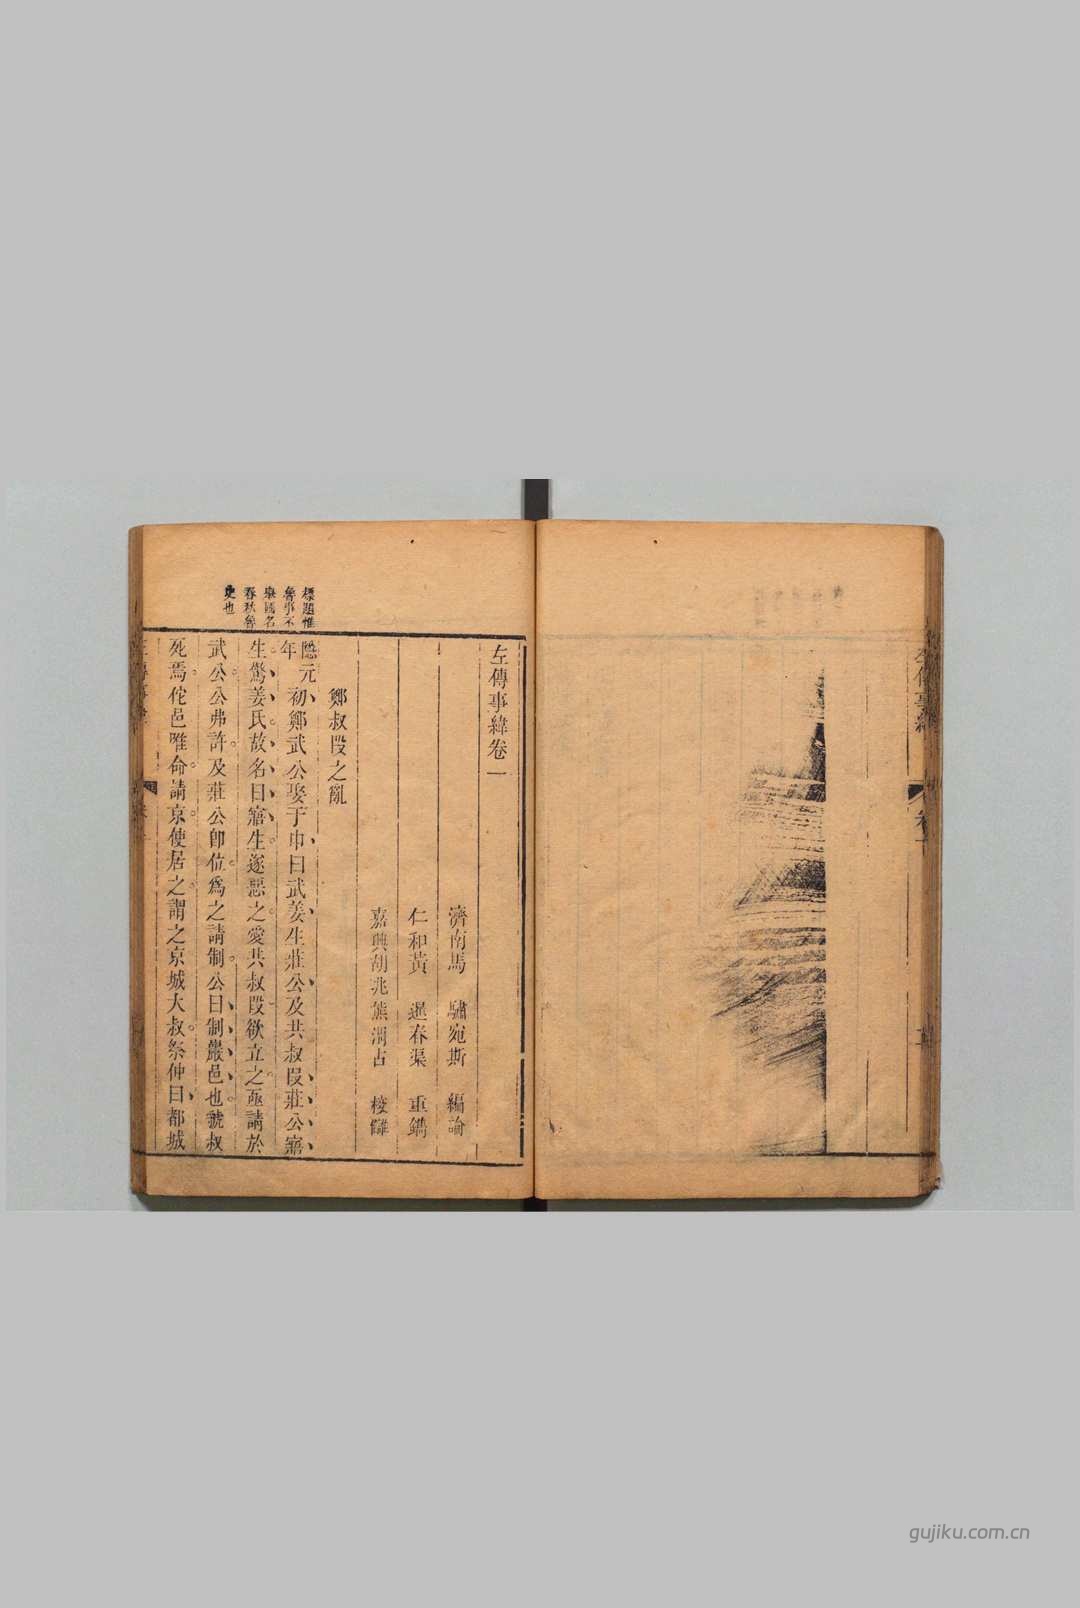 左傳事緯
卷一
左傳事緯卷一
濟南馬　驌宛斯　編論
仁和黃　暹春渠　重鐫
嘉興胡兆熊渭占　校讎
鄭叔段之亂
標題惟
魯事不
舉國名
春秋魯
史也
隱元年　初鄭武公娶于申曰武姜生莊公及共叔段莊公寤
生驚姜氏故名曰寤生遂惡之愛共叔段欲立之亟請於
武公公弗許及莊公即位爲之請制公曰制巖邑也虢叔
死焉佗邑唯命請京使居之謂之京城大叔祭仲曰都城
gujiku.com.cn